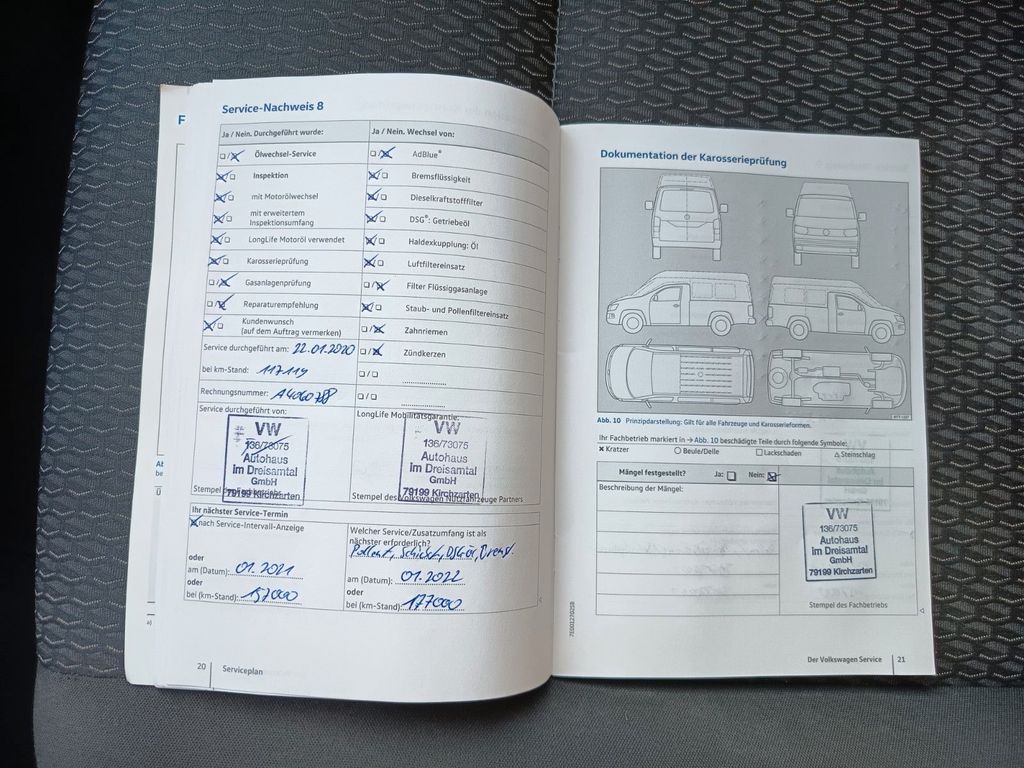 Service-Nachweis 8
Ja / Nein. Durchgeführt wurde:
Ölwechsel-Service
Inspektion
mit Motorölwechsel
mit erweitertem
Inspektionsumfang
LongLife Motoröl verwendet
Karosserieprüfung
Gasanlagenprüfung
Reparaturempfehlung
Kundenwunsch
(auf dem Auftrag vermerken)
Service durchgeführt am: 22.01.2020
bei km-Stand: 117119
Rechnungsnummer:
Service durchgeführt von:
VW
136/73075
Autohaus
im Dreisamtal
GmbH
79199 Kirchzarten
Ja / Nein. Wechsel von:
AdBlue®
Bremsflüssigkeit
Dieselkraftstofffilter
DSG®: Getriebeöl
Haldexkupplung: Öl
Luftfiltereinsatz
Filter Flüssiggasanlage
Staub- und Pollenfiltereinsatz
Zahnriemen
Zündkerzen
LongLife Mobilitätsgarantie:
VW
136/73075
Autohaus
im Dreisamtal
GmbH
79199 Kirchzarten
Stempel des Volkswagen Nutzfahrzeuge Partners
Ihr nächster Service-Termin
nach Service-Intervall-Anzeige
oder
am (Datum): 01.2021
oder
bei (km-Stand): 157000
Welcher Service/Zusatzumfang ist als
nächster erforderlich?
am (Datum): 01.2022
oder
bei (km-Stand): 177000
20
Serviceplan
Dokumentation der Karosserieprüfung
Abb. 10 Prinzipdarstellung: Gilt für alle Fahrzeuge und Karosserieformen.
Ihr Fachbetrieb markiert in → Abb. 10 beschädigte Teile durch folgende Symbole:
× Kratzer ○ Beule/Delle □ Lackschaden △ Steinschlag
Mängel festgestellt? Ja: Nein:
Beschreibung der Mängel:
VW
136/73075
Autohaus
im Dreisamtal
GmbH
79199 Kirchzarten
Stempel des Fachbetriebs
Der Volkswagen Service 21